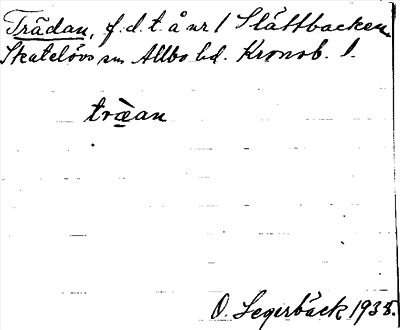 Trädan, f.d.t. å nr 1 Slättbacken
Skatelövs sn Allbo hd. Kronob. l.
træ̀an
O. Segerbäck 1935.